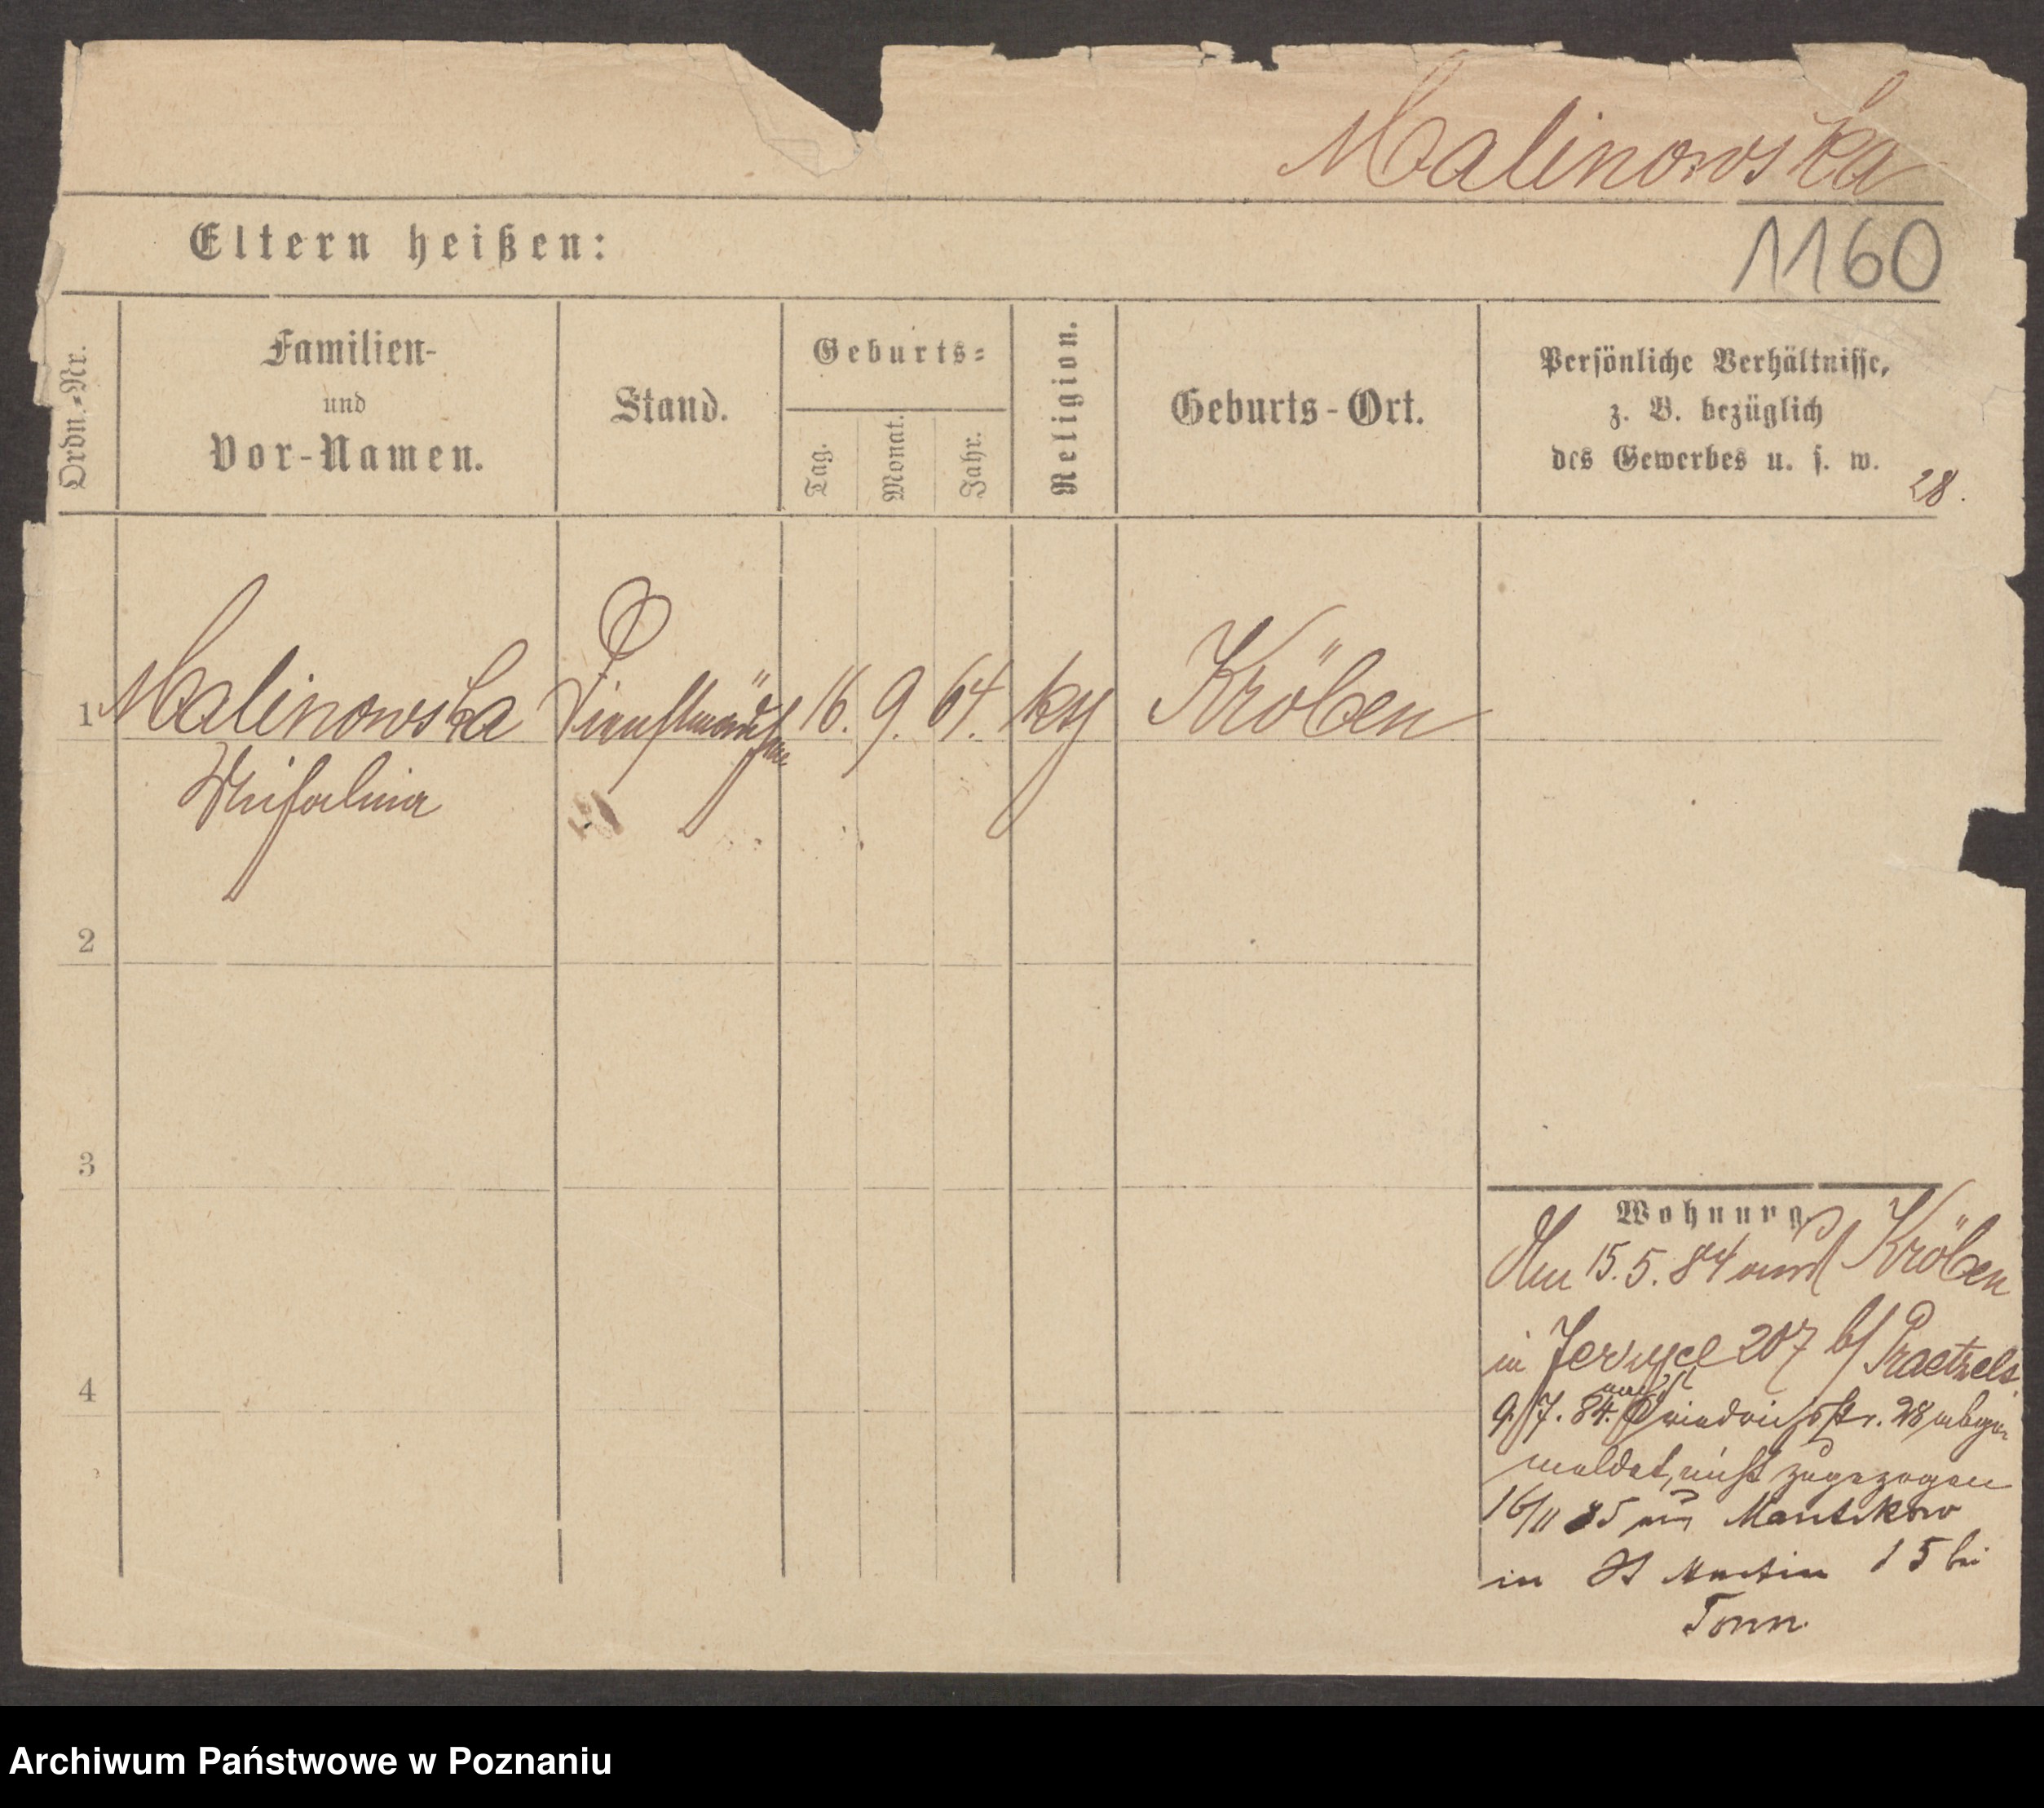 Malinowska
Eltern heißen:
1160
Ordn.-Nr.
Familien-
und
Vor-Namen.
Stand.
Geburts-
Tag.
Monat.
Jahr.
Religion.
Geburts-Ort.
Persönliche Verhältnisse,
z. B. bezüglich
des Gewerbes u. s. w.
28.
1
Malinowska
Michalina
Dienstmädchen
16.
9.
64.
Kröben
2
3
4
Wohnung
Am 15.5.84 aus Kröben
in Jerzyce 207 b/
9/7. 84. nach Friedrichstr. 28 abge-
meldet, nicht zugezogen
16/11 85 aus
in St Martin 15 bei
Tonn.
Archiwum Państwowe w Poznaniu